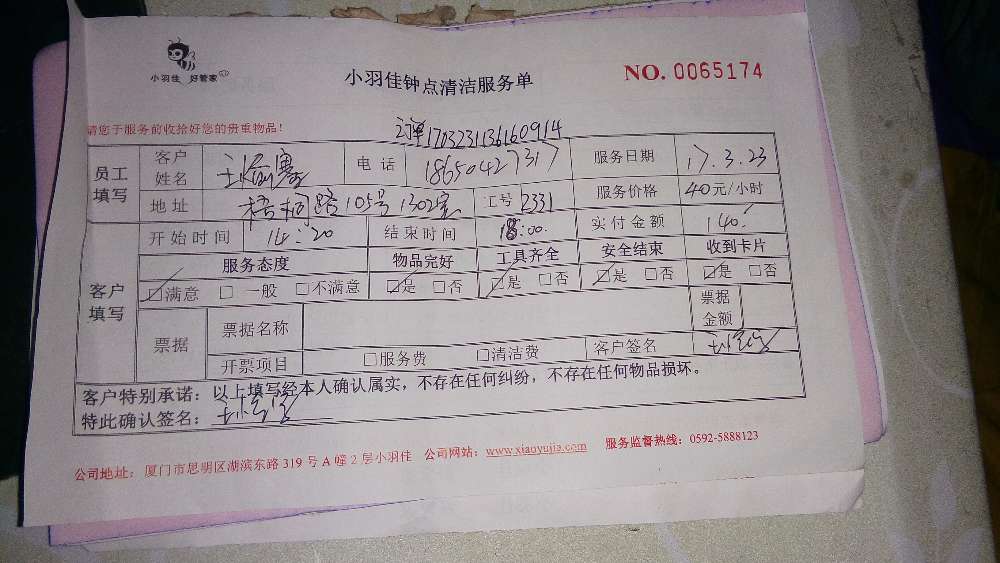 小羽佳 好管家
小羽佳钟点清洁服务单
NO. 0065174
请您于服务前收拾好您的贵重物品!
订单1703231136160914
员工填写
客户姓名
电话 18650427317
服务日期 17.3.23
地址 路105号1302室
工号 2331
服务价格 40元/小时
客户填写
开始时间 14:20
结束时间 18:00
实付金额 140
服务态度 物品完好 工具齐全 安全结束 收到卡片
☑满意 □一般 □不满意 ☑是 □否 ☑是 □否 ☑是 □否 ☑是 □否
票据 票据名称 票据金额
开票项目 □服务费 □清洁费 客户签名
客户特别承诺:以上填写经本人确认属实,不存在任何纠纷,不存在任何物品损坏。
特此确认签名:
公司地址:厦门市思明区湖滨东路319号A幢2层小羽佳 公司网站:www.xiaoyujia.com 服务监督热线:0592-5888123